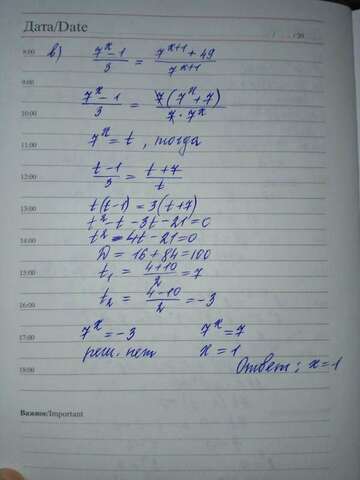 Дата/Date
/ /20
8:00 в) (7^x - 1)/3 = (7^(x+1) + 49)/7^(x+1)
9:00
10:00 (7^x - 1)/3 = 7(7^x + 7)/(7 · 7^x)
11:00 7^x = t, тогда
12:00 (t - 1)/3 = (t + 7)/t
13:00 t(t-1) = 3(t+7)
t² - t - 3t - 21 = 0
14:00 t² - 4t - 21 = 0
D = 16 + 84 = 100
15:00 t₁ = (4+10)/2 = 7
16:00 t₂ = (4-10)/2 = -3
17:00 7^x = -3 7^x = 7
реш. нет x = 1
18:00 Ответ: x = 1
Важно/Important